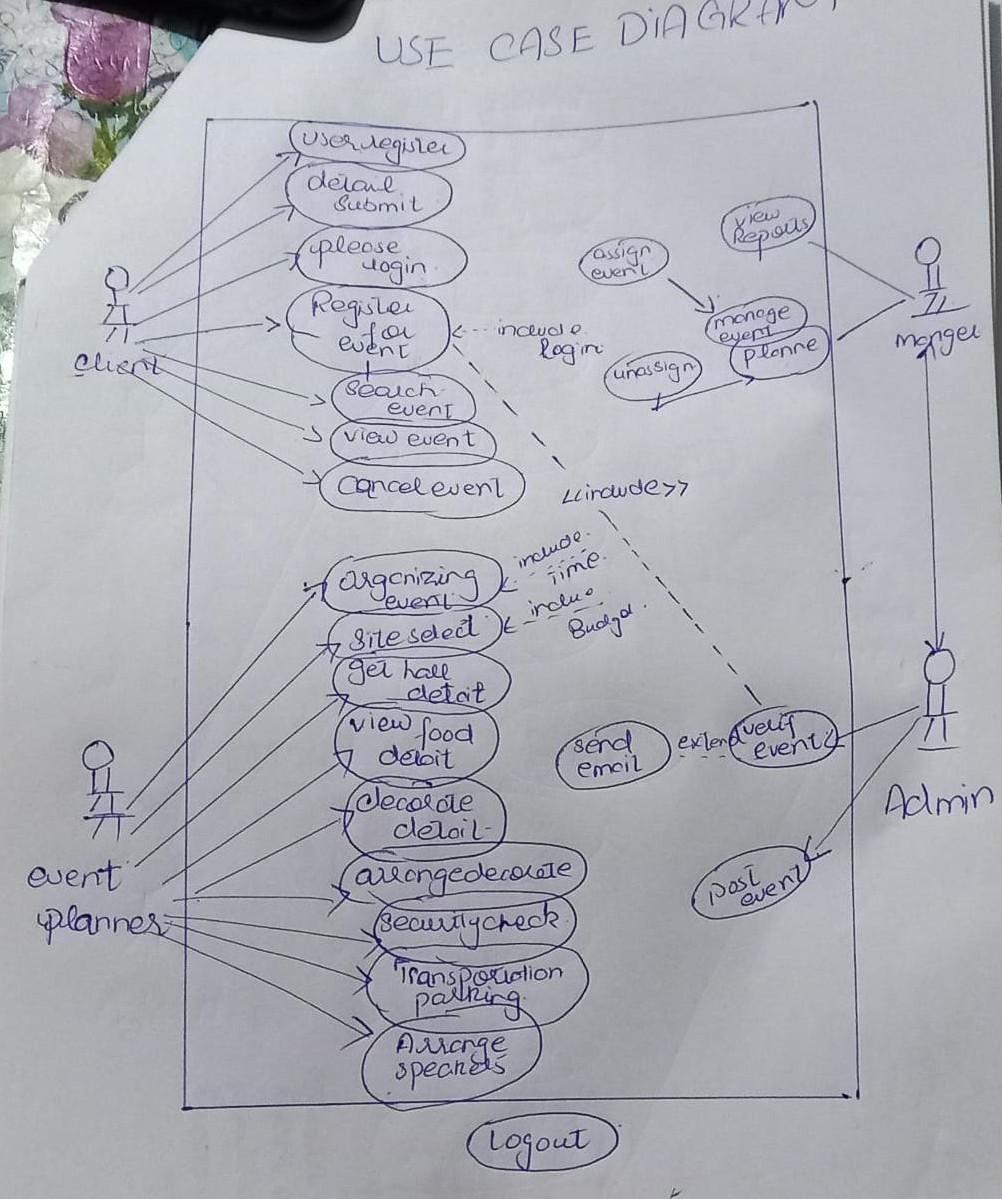 USE CASE DIAGRAM
user register
detail
submit
please
login
Register
for
event
include
login
search
event
view event
cancel event
client
view
Reports
assign
event
manage
event
planne
unassign
manger
<<include>>
organizing
event
include
Time
site select
inclu
Budget
get hall
detail
view food
detail
decorate
detail
arrange decorate
security check
Transportation
parking
Arrange
speakers
event
planner
send
email
extend
verify
event
Admin
post
event
Logout